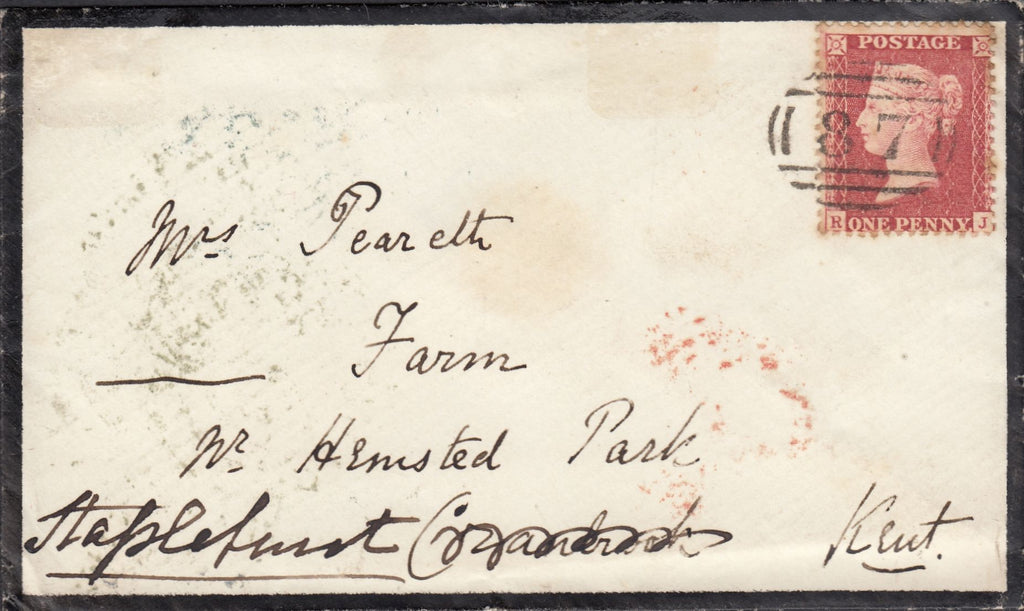 POSTAGE
87
R ONE PENNY J
Mrs Peareth
Farm
Nr Hemsted Park
Staplehurst Cranbrook Kent.